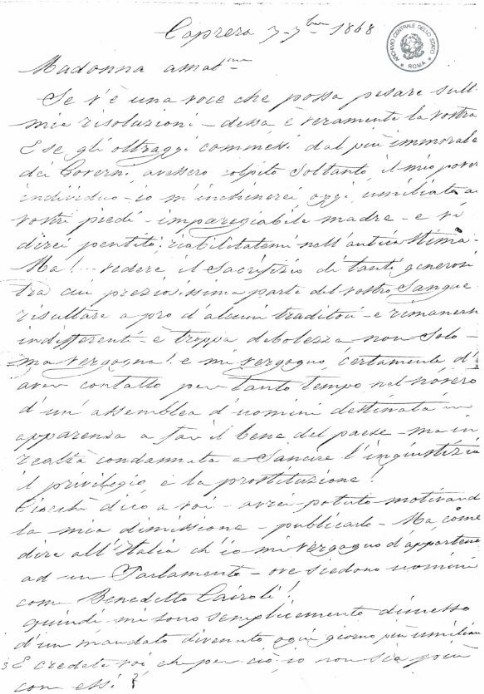 Caprera 7-7bre 1868
ARCHIVIO CENTRALE DELLO STATO
ROMA
Madonna amatma
Se v'è una voce che possa pesare sull
mie risoluzioni - dessa è veramente la vostra
E se gli oltraggi commessi dal più immorale
dei Governi, avessero colpito soltanto, il mio pove
individuo - io m'inchinerei, oggi, umiliato a
vostri piedi - impareggiabile madre - e vi
direi pentito, riabilitatemi nell'antica stima
Ma!... vedere il Sacrifizio di tanti generosi
tra cui preziosissima parte del vostro Sangue
risultare a pro d'alcuni traditori - e rimanere
indifferenti - è troppa debolezza non solo
ma vergogna! e mi vergogno, certamente d'
aver contatto per tanto tempo nel novero
d'un assemblea d'uomini destinata in
apparenza a far il bene del paese - ma in
realtà condannata a Sancire l'ingiustizia
il privilegio, e la prostituzione!
Ciocchè dico a voi - avrei potuto motivando
la mia dimissione - publicarlo - Ma come
dire all'Italia ch'io mi vergogno d'appartene
ad un Parlamento - ove siedono uomini
com Benedetto Cairoli!
quindi mi sono semplicemente dimesso
d'un mandato divenuto ogni giorno più umilian
E credete voi che per ciò, io non sia più
con essi?